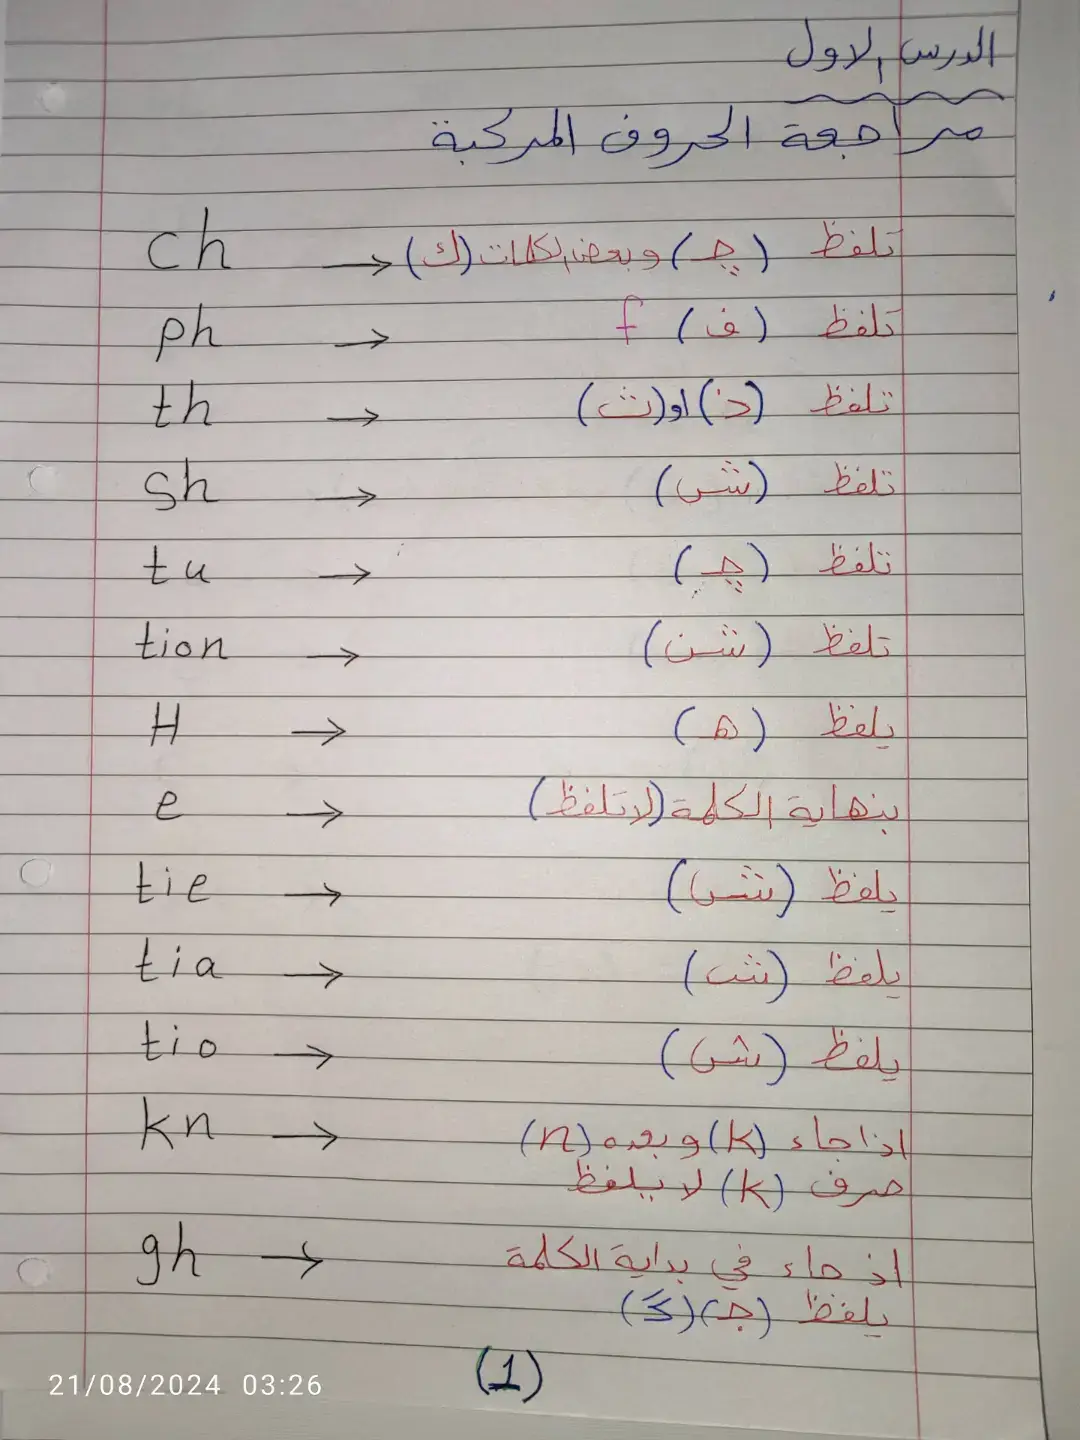 الدرس الاول
مراجعة الحروف المركبة
ch → تلفظ (چـ) وبعض الكلمات (ك)
ph → تلفظ (ف) f
th → تلفظ (ذ) او (ث)
sh → تلفظ (ش)
tu → تلفظ (چـ)
tion → تلفظ (شن)
H → يلفظ (هـ)
e → بنهاية الكلمة (لاتلفظ)
tie → يلفظ (ش)
tia → يلفظ (ش)
tio → يلفظ (ش)
kn → اذا جاء (k) وبعده (n)
حرف (k) لا يلفظ
gh → اذ جاء في بداية الكلمة
يلفظ (جـ) (گ)
(1)
21/08/2024 03:26